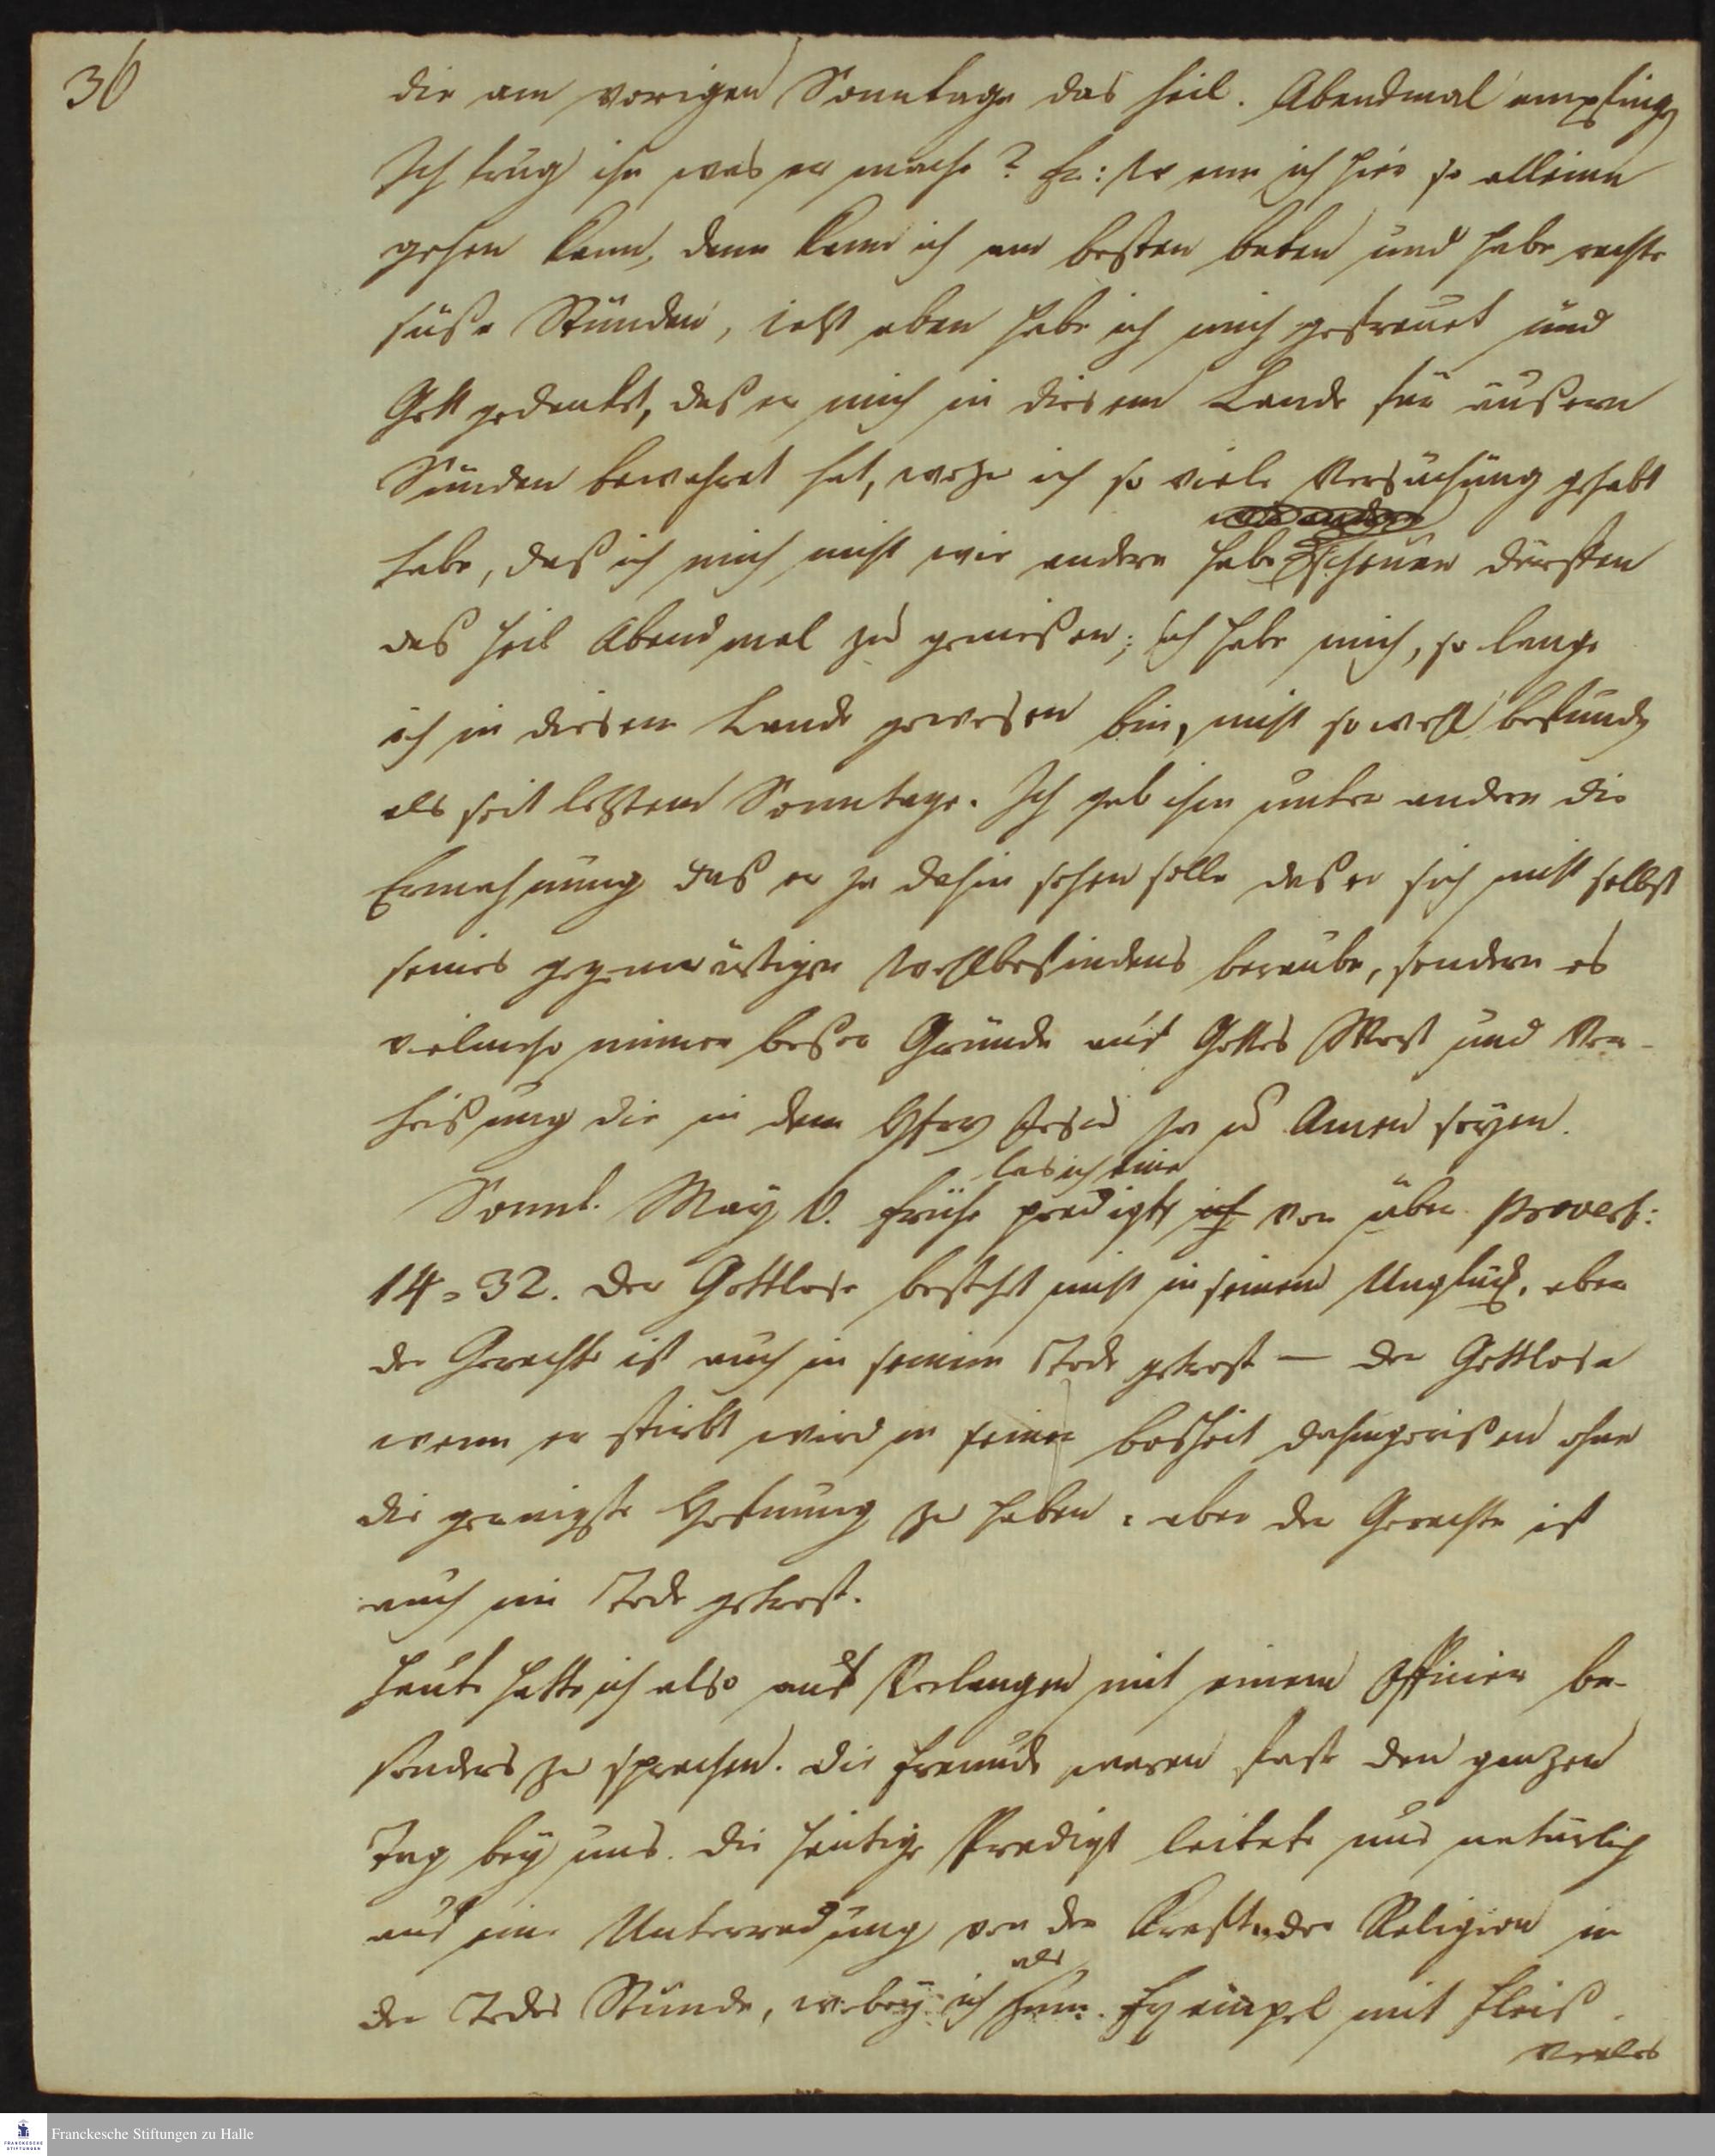 36
die am vorigen Sonntage das heil. Abendmal empfing
Ich frug ihn was er mache? Er: Wenn ich hier so alleine
gehen kann, dann kann ich am besten beten und habe rechte
süße Stunden, jetzt eben habe ich mich gefreuet und
Gott gedankt, daß er mich in diesem Lande für äußern
Sünden bewahret hat, wozu ich so viele Versuchung gehabt
habe, daß ich mich nicht wie andere habe scheuen dürffen
das heil Abendmal zu genießen; ich habe mich, so lange
ich in diesem Lande gewesen bin, nicht so wohl befunden
als seit letztem Sonntage. Ich gab ihm unter andern die
Ermahnung daß er ja dahin sehen solle daß er sich nicht selbst
seines gegenwärtigen Wohlbefindens beraube, sondern es
vielmehr immer beßer Gründe auf Gottes Wort und Ver-
heißung die in dem Herrn Jesu ja u Amen seyen.
las ich eine
Sonnt. May 6. frühe predigte ich von über Proverb:
14=32. Der Gottlose bestehet nicht in seinem Unglück, aber
der Gerechte ist auch in seinem Tode getrost — der Gottlose
wenn er stirbt wird in seiner bosheit dahingerißen ohne
die geringste Hofnung zu haben: aber der Gerechte ist
auch im Tode getrost.
Heute hatte ich also auf Verlangen mit einem Officier be-
sonders zu sprechen. Die Freunde waren fast den ganzen
Tag bey uns. Die heutige Predigt leitete uns natürlich
auf eine Unterredung von der Kraft der Religion in
der Todes Stunde, wobey ich zum Exempel mit Fleiß
als
Franckesche Stiftungen zu Halle